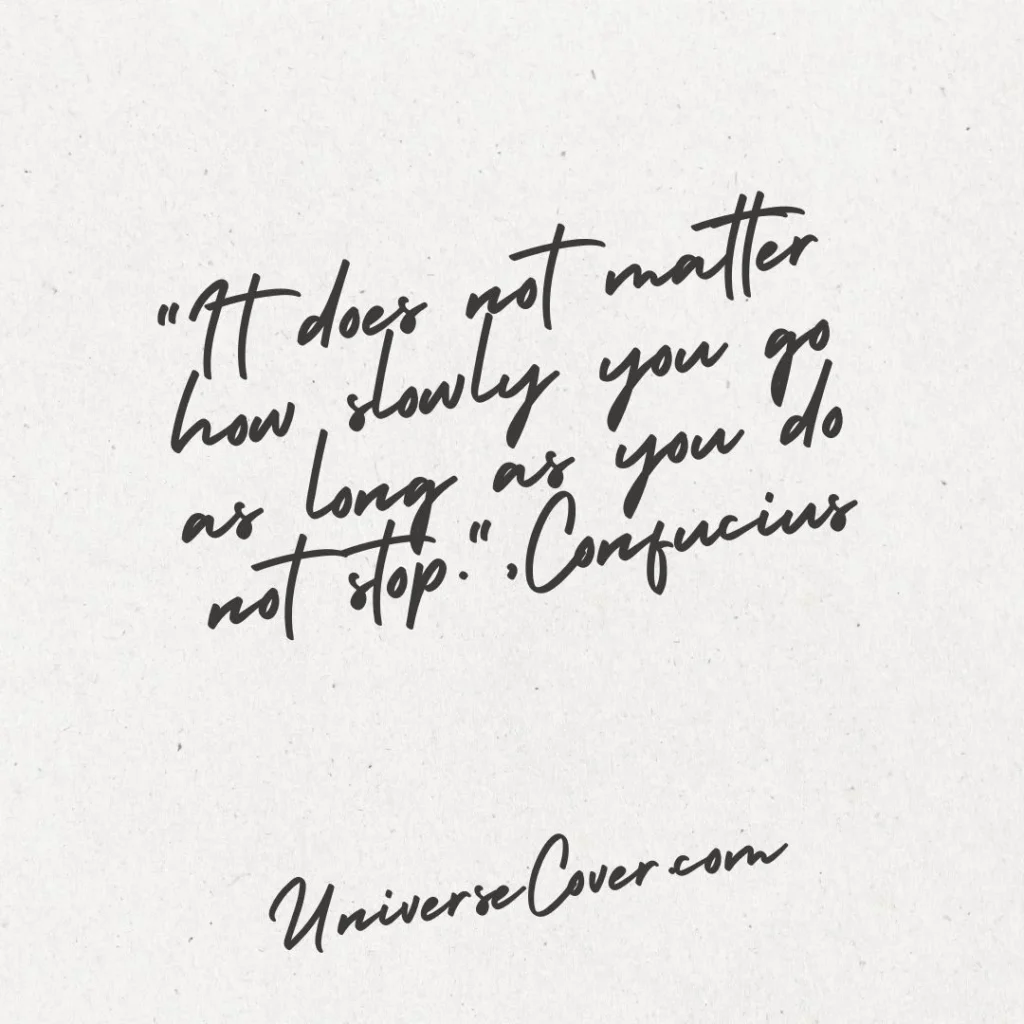 "It does not matter
how slowly you go
as long as you do
not stop.",Confucius
UniverseCover.com